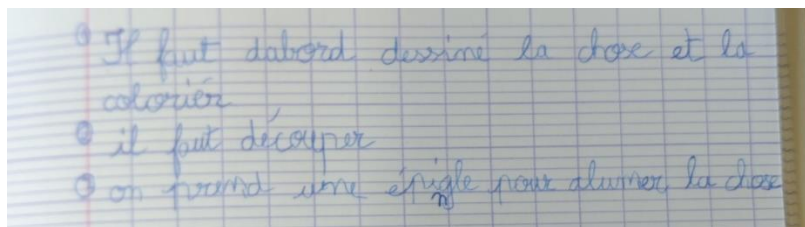 Il faut dabord dessiné la chose et la
coloriér
il faut découper
on prend une épingle pour alumer la chose